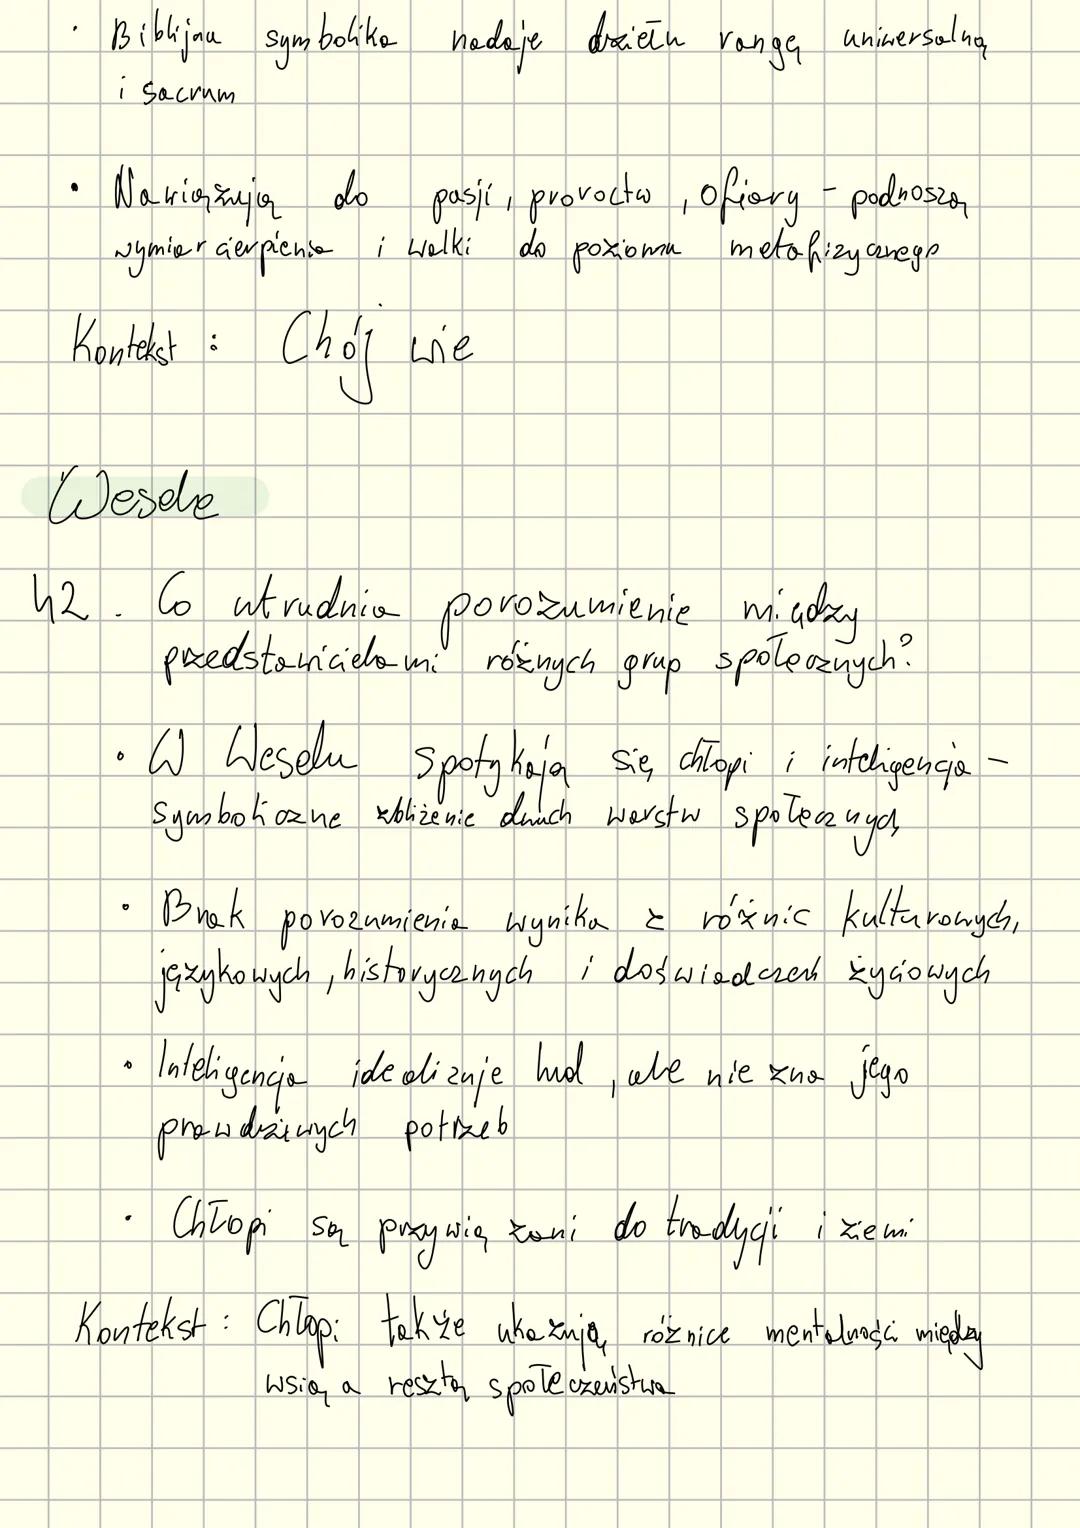 • Biblijna symbolika nadaje dziełu rangę uniwersalną
i sacrum
• Nawiązują do pasji, proroctw, ofiary - podnoszą
wymiar cierpienia i walki do poziomu metafizycznego
Kontekst : Chój wie
Wesele
42. Co utrudnia porozumienie między
przedstawicielami różnych grup społecznych?
• W Weselu spotykają się chłopi i inteligencja -
symboliczne zbliżenie dwuch warstw społecznych
• Brak porozumienia wynika z różnic kulturowych,
językowych, historycznych i doświadczeń życiowych
• Inteligencja idealizuje lud, ale nie zna jego
prawdziwych potrzeb
• Chłopi są przywiązani do tradycji i ziemi
Kontekst : Chłopi także ukazują różnice mentalności między
wsią a resztą społeczeństwa